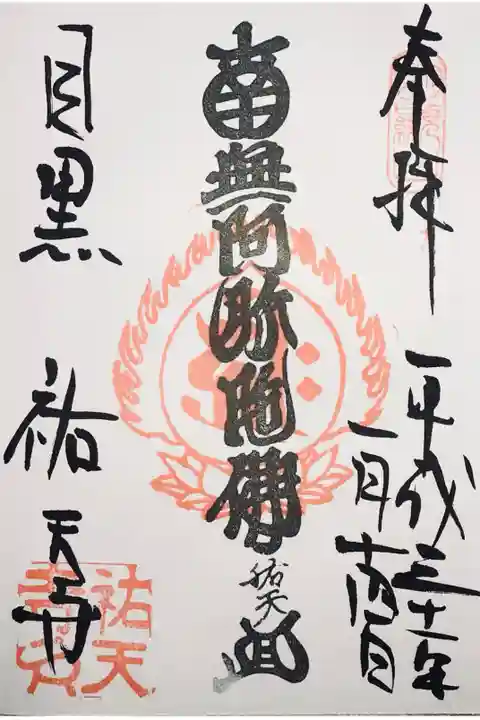 奉拝
平成三十一年
一月
南無阿弥陀佛
祐天
目黒
祐天寺
祐天寺